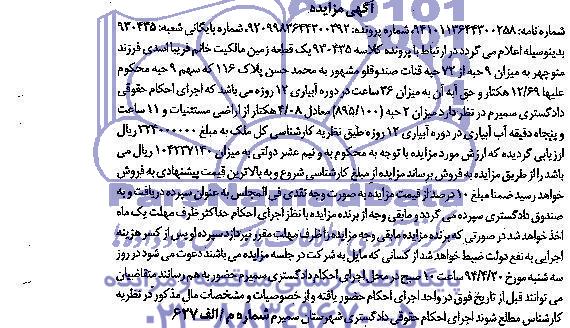 آگهی مزایده
شماره نامه: 9410113644300258 شماره پرونده: 9209982644300392 شماره بایگانی شعبه: 930435
بدینوسیله اعلام می گردد در ارتباط با پرونده کلاسه 930435 یک قطعه زمین مالکیت خانم فریبا اسدی فرزند
منوچهر به میزان 9 حبه از 72 حبه قنات صندوقلو مشهور به محمد حسن پلاک 116 که سهم 9 حبه محکوم
علیها 12/69 هکتار و حق آبه آن به میزان 36 ساعت در دوره آبیاری 12 روزه می باشد که اجرای احکام حقوقی
دادگستری سمیرم در نظر دارد میزان 2 حبه (895/100) معادل 4/08 هکتار از اراضی مستثنیات و 11 ساعت
و پنجاه دقیقه آب آبیاری در دوره آبیاری 12 روزه طبق نظریه کارشناسی کل ملک به مبلغ ریال
ارزیابی گردیده که ارزش مورد مزایده با توجه به محکوم به و نیم عشر دولتی به میزان 104237140 ریال می
باشد را از طریق مزایده به فروش برساند مزایده از مبلغ کارشناسی شروع و به بالاترین قیمت پیشنهادی به فروش
خواهد رسید ضمنا مبلغ 10 درصد از قیمت مزایده به صورت وجه نقدی فی المجلس به عنوان سپرده دریافت و به
صندوق دادگستری سپرده می گردد و مابقی وجه از برنده مزایده با نظر اجرای احکام حداکثر ظرف مهلت یک ماه
اخذ خواهد شد در صورتی که برنده مزایده مابقی وجه مزایده را ظرف مهلت مقرر نپردازد سپرده او پس از کسر هزینه
اجرایی به نفع دولت ضبط خواهد شد از کسانی که مایل به شرکت در جلسه مزایده می باشند دعوت می شود در روز
سه شنبه مورخ 94/4/30 ساعت 10 صبح در محل اجرای احکام دادگستری سمیرم حضور به هم رسانند متقاضیان
می توانند قبل از تاریخ فوق در واحد اجرای احکام حضور یافته و از خصوصیات و مشخصات مال مذکور در نظریه
کارشناس مطلع شوند اجرای احکام حقوقی دادگستری شهرستان سمیرم شماره م/الف 627